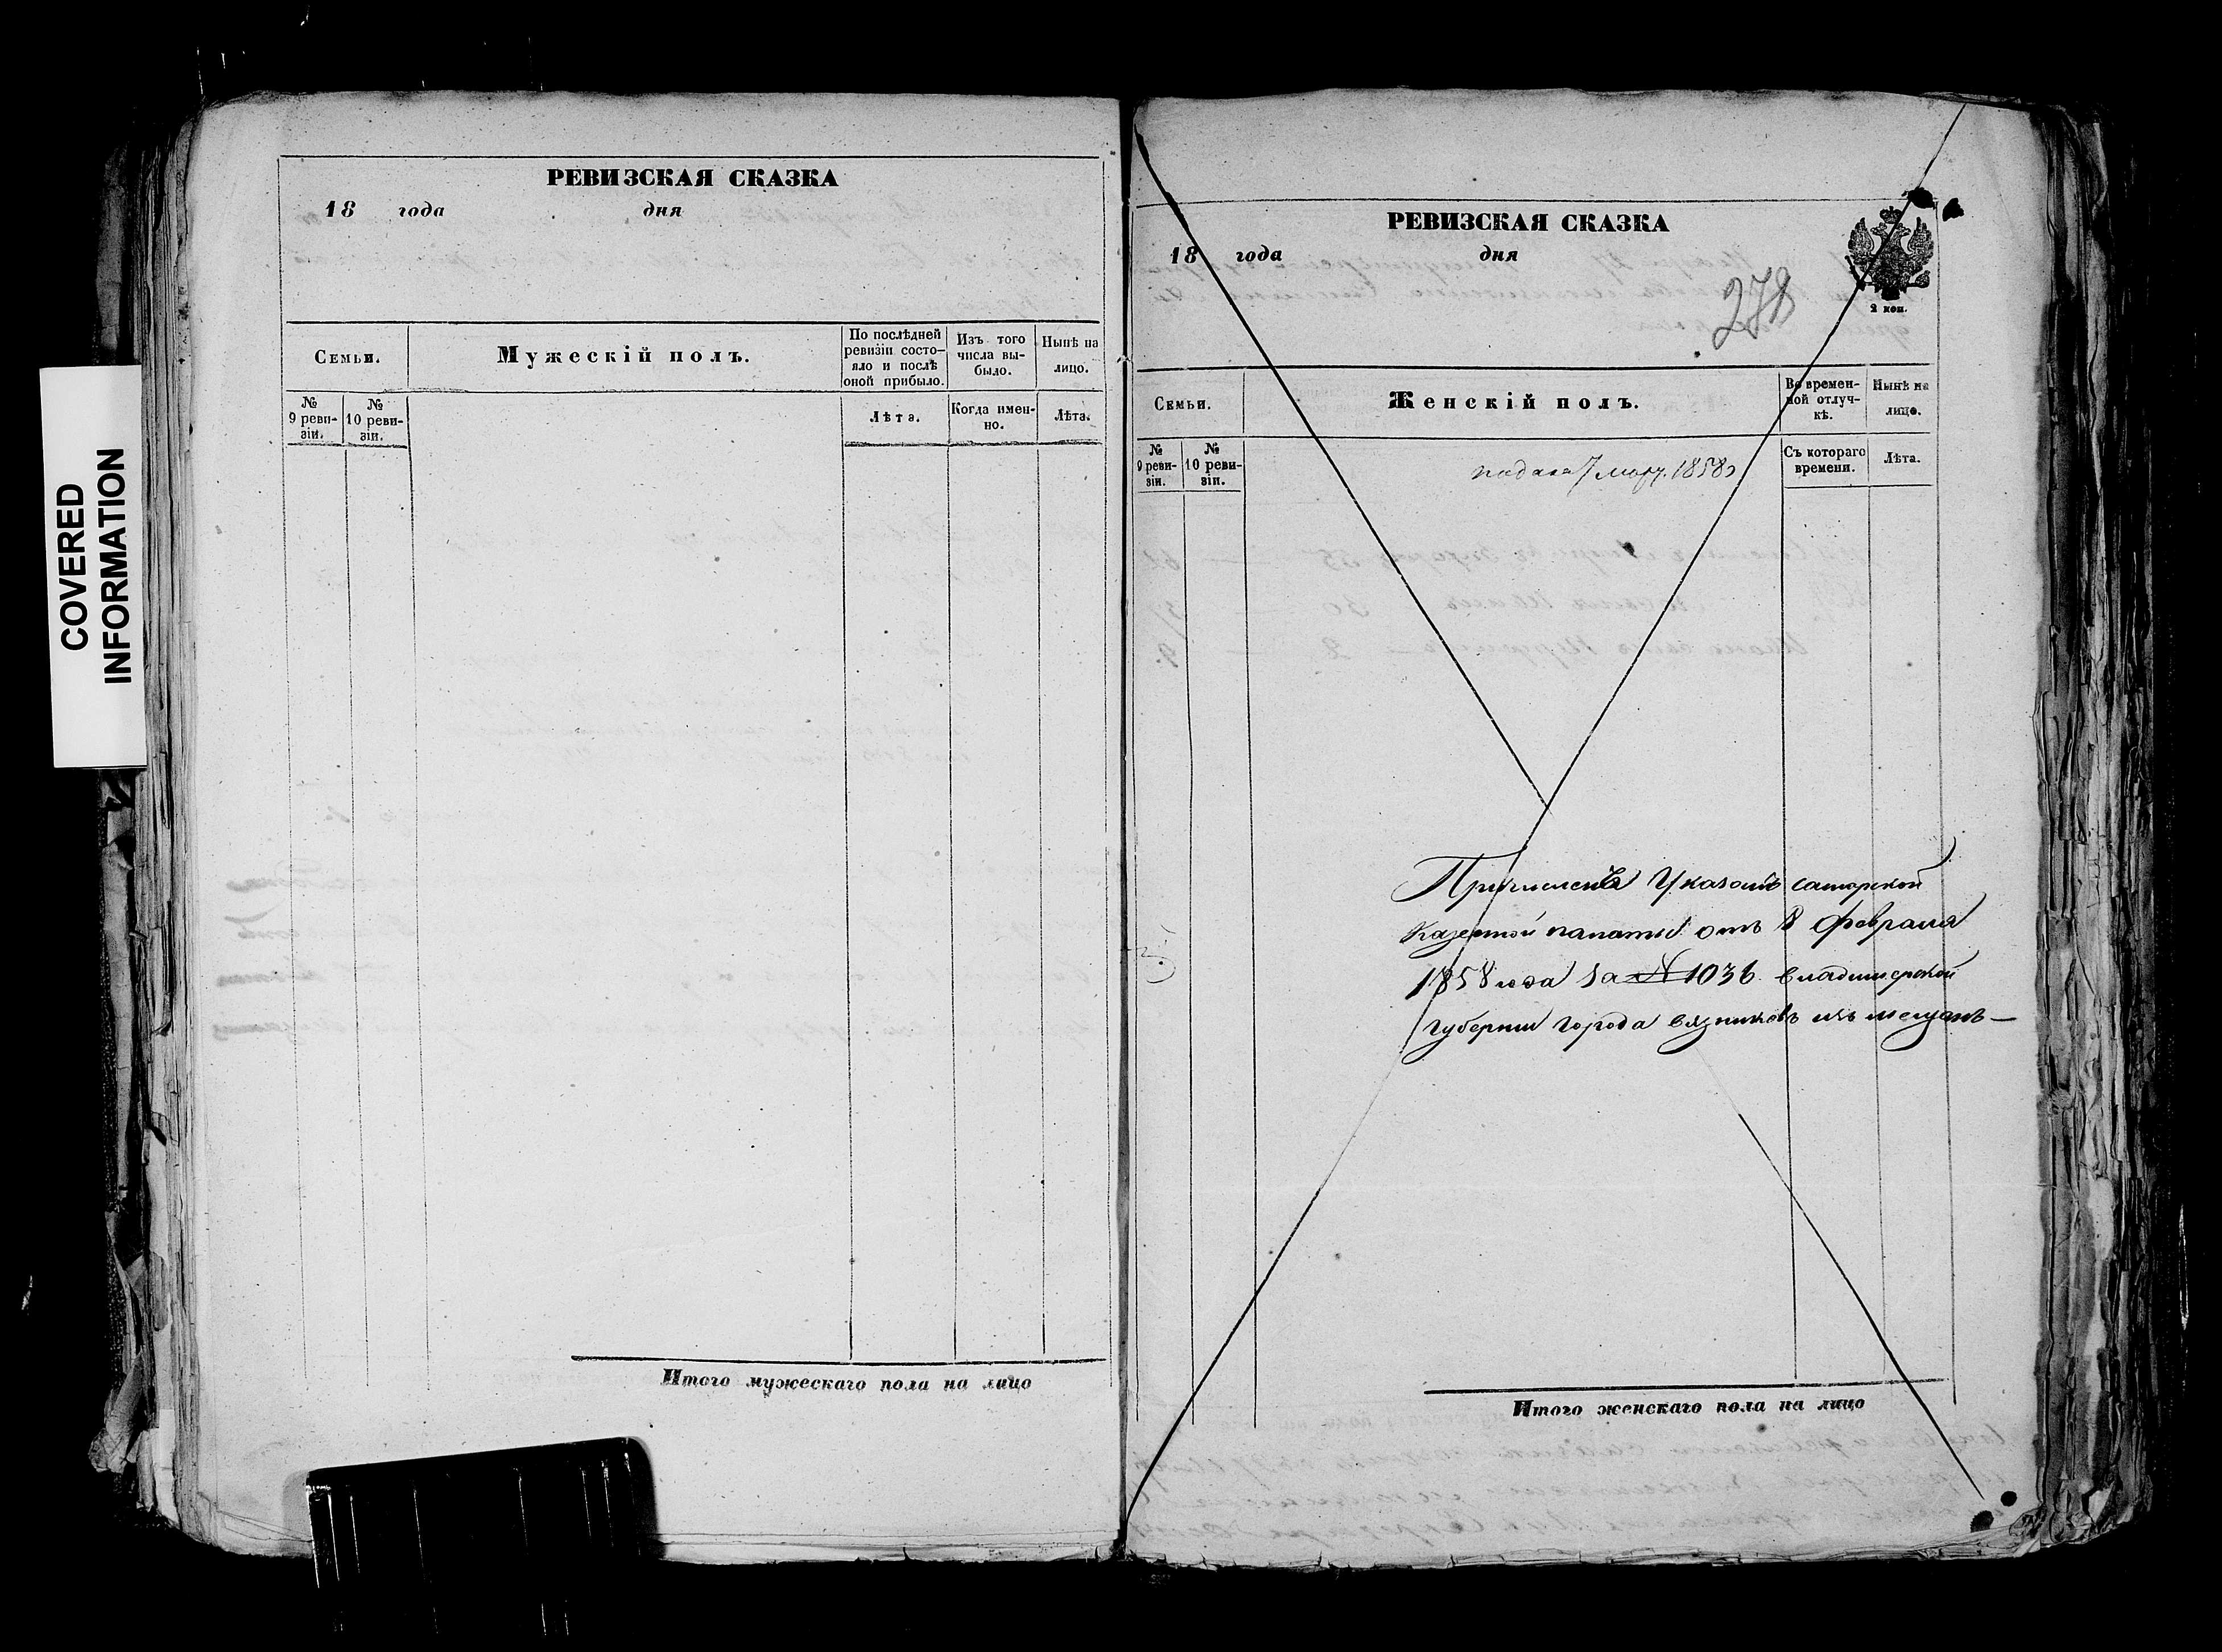 COVERED
INFORMATION
РЕВИЗСКАЯ СКАЗКА
18 года дня
Семьи.
Мужескій полъ.
По послѣдней
ревизіи состо-
яло и послѣ
оной прибыло.
Изъ того
числа вы-
было.
Нынѣ на
лицо.
№
9 реви-
зіи.
№
10 реви-
зіи.
Лѣта.
Когда имен-
но.
Лѣта.
Итого мужескаго пола на лицо
РЕВИЗСКАЯ СКАЗКА
18 года дня
278
2 коп.
Семьи.
Женскій полъ.
Во времен-
ной отлуч-
кѣ.
Нынѣ на
лицо.
№
9 реви-
зіи.
№
10 реви-
зіи.
Съ котораго
времени.
Лѣта.
подана 7 мар. 1858
Причисленъ Указомъ самарской
Казенной палаты отъ 8 февраля
1858 года за № 1036 владимерской
губернии города вязниковъ изъ мещанъ—
Итого женскаго пола на лицо